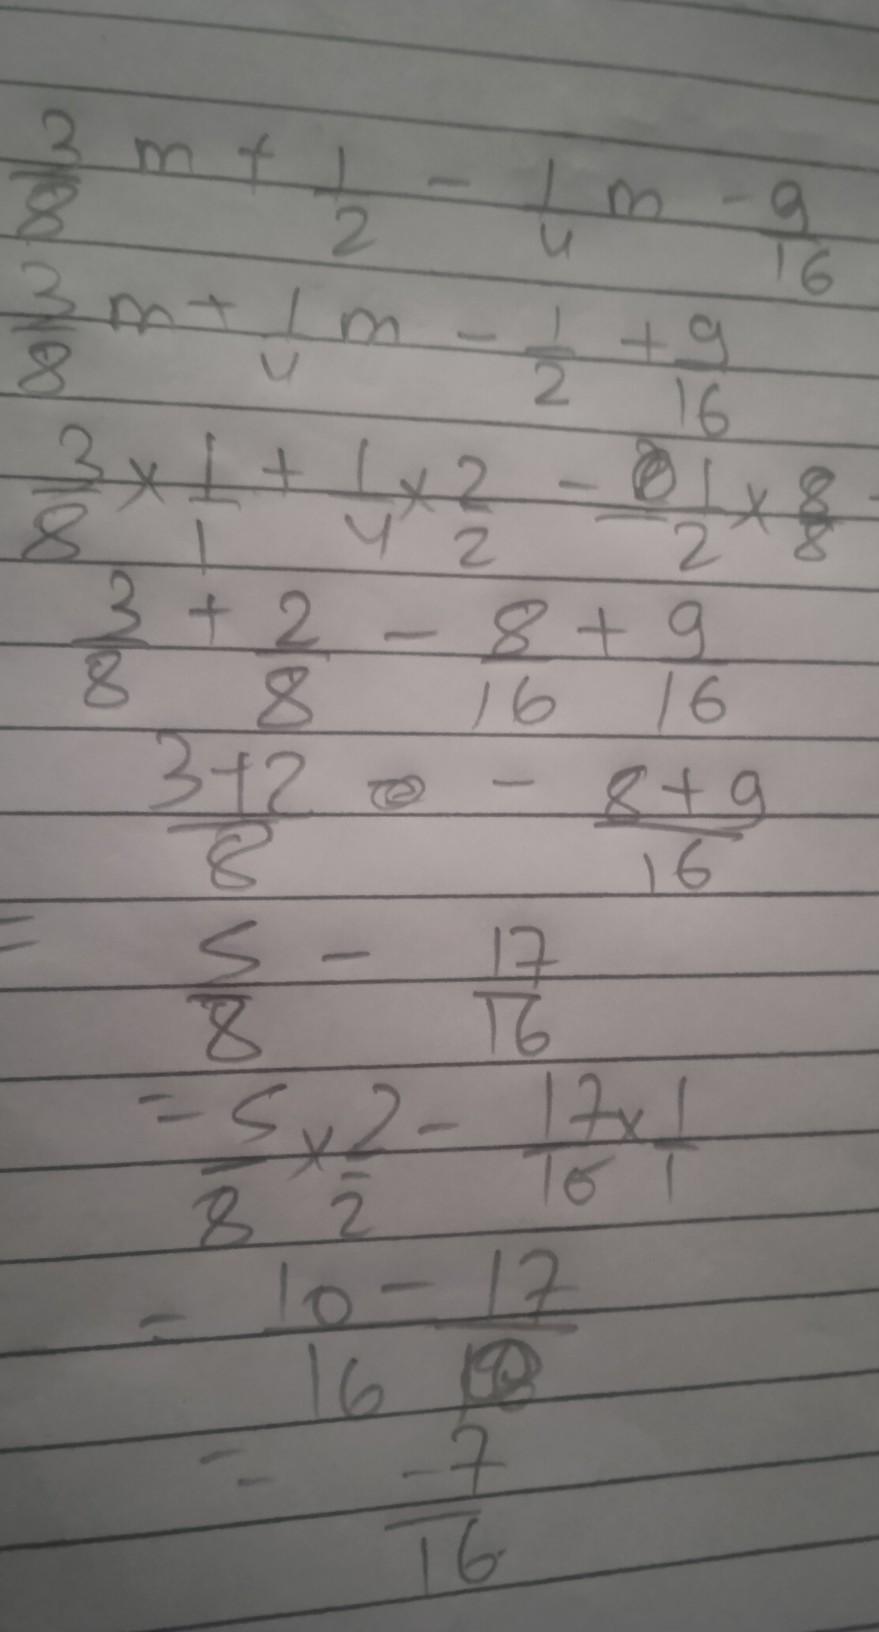 3/8 m + 1/2 - 1/4 m - 9/16
3/8 m + 1/4 m - 1/2 + 9/16
3/8 × 1/1 + 1/4 × 2/2 - 1/2 × 8/8
3/8 + 2/8 - 8/16 + 9/16
3+2/8 - 8+9/16
= 5/8 - 17/16
= 5/8 × 2/2 - 17/16 × 1/1
= 10 - 17/16
= -7/16